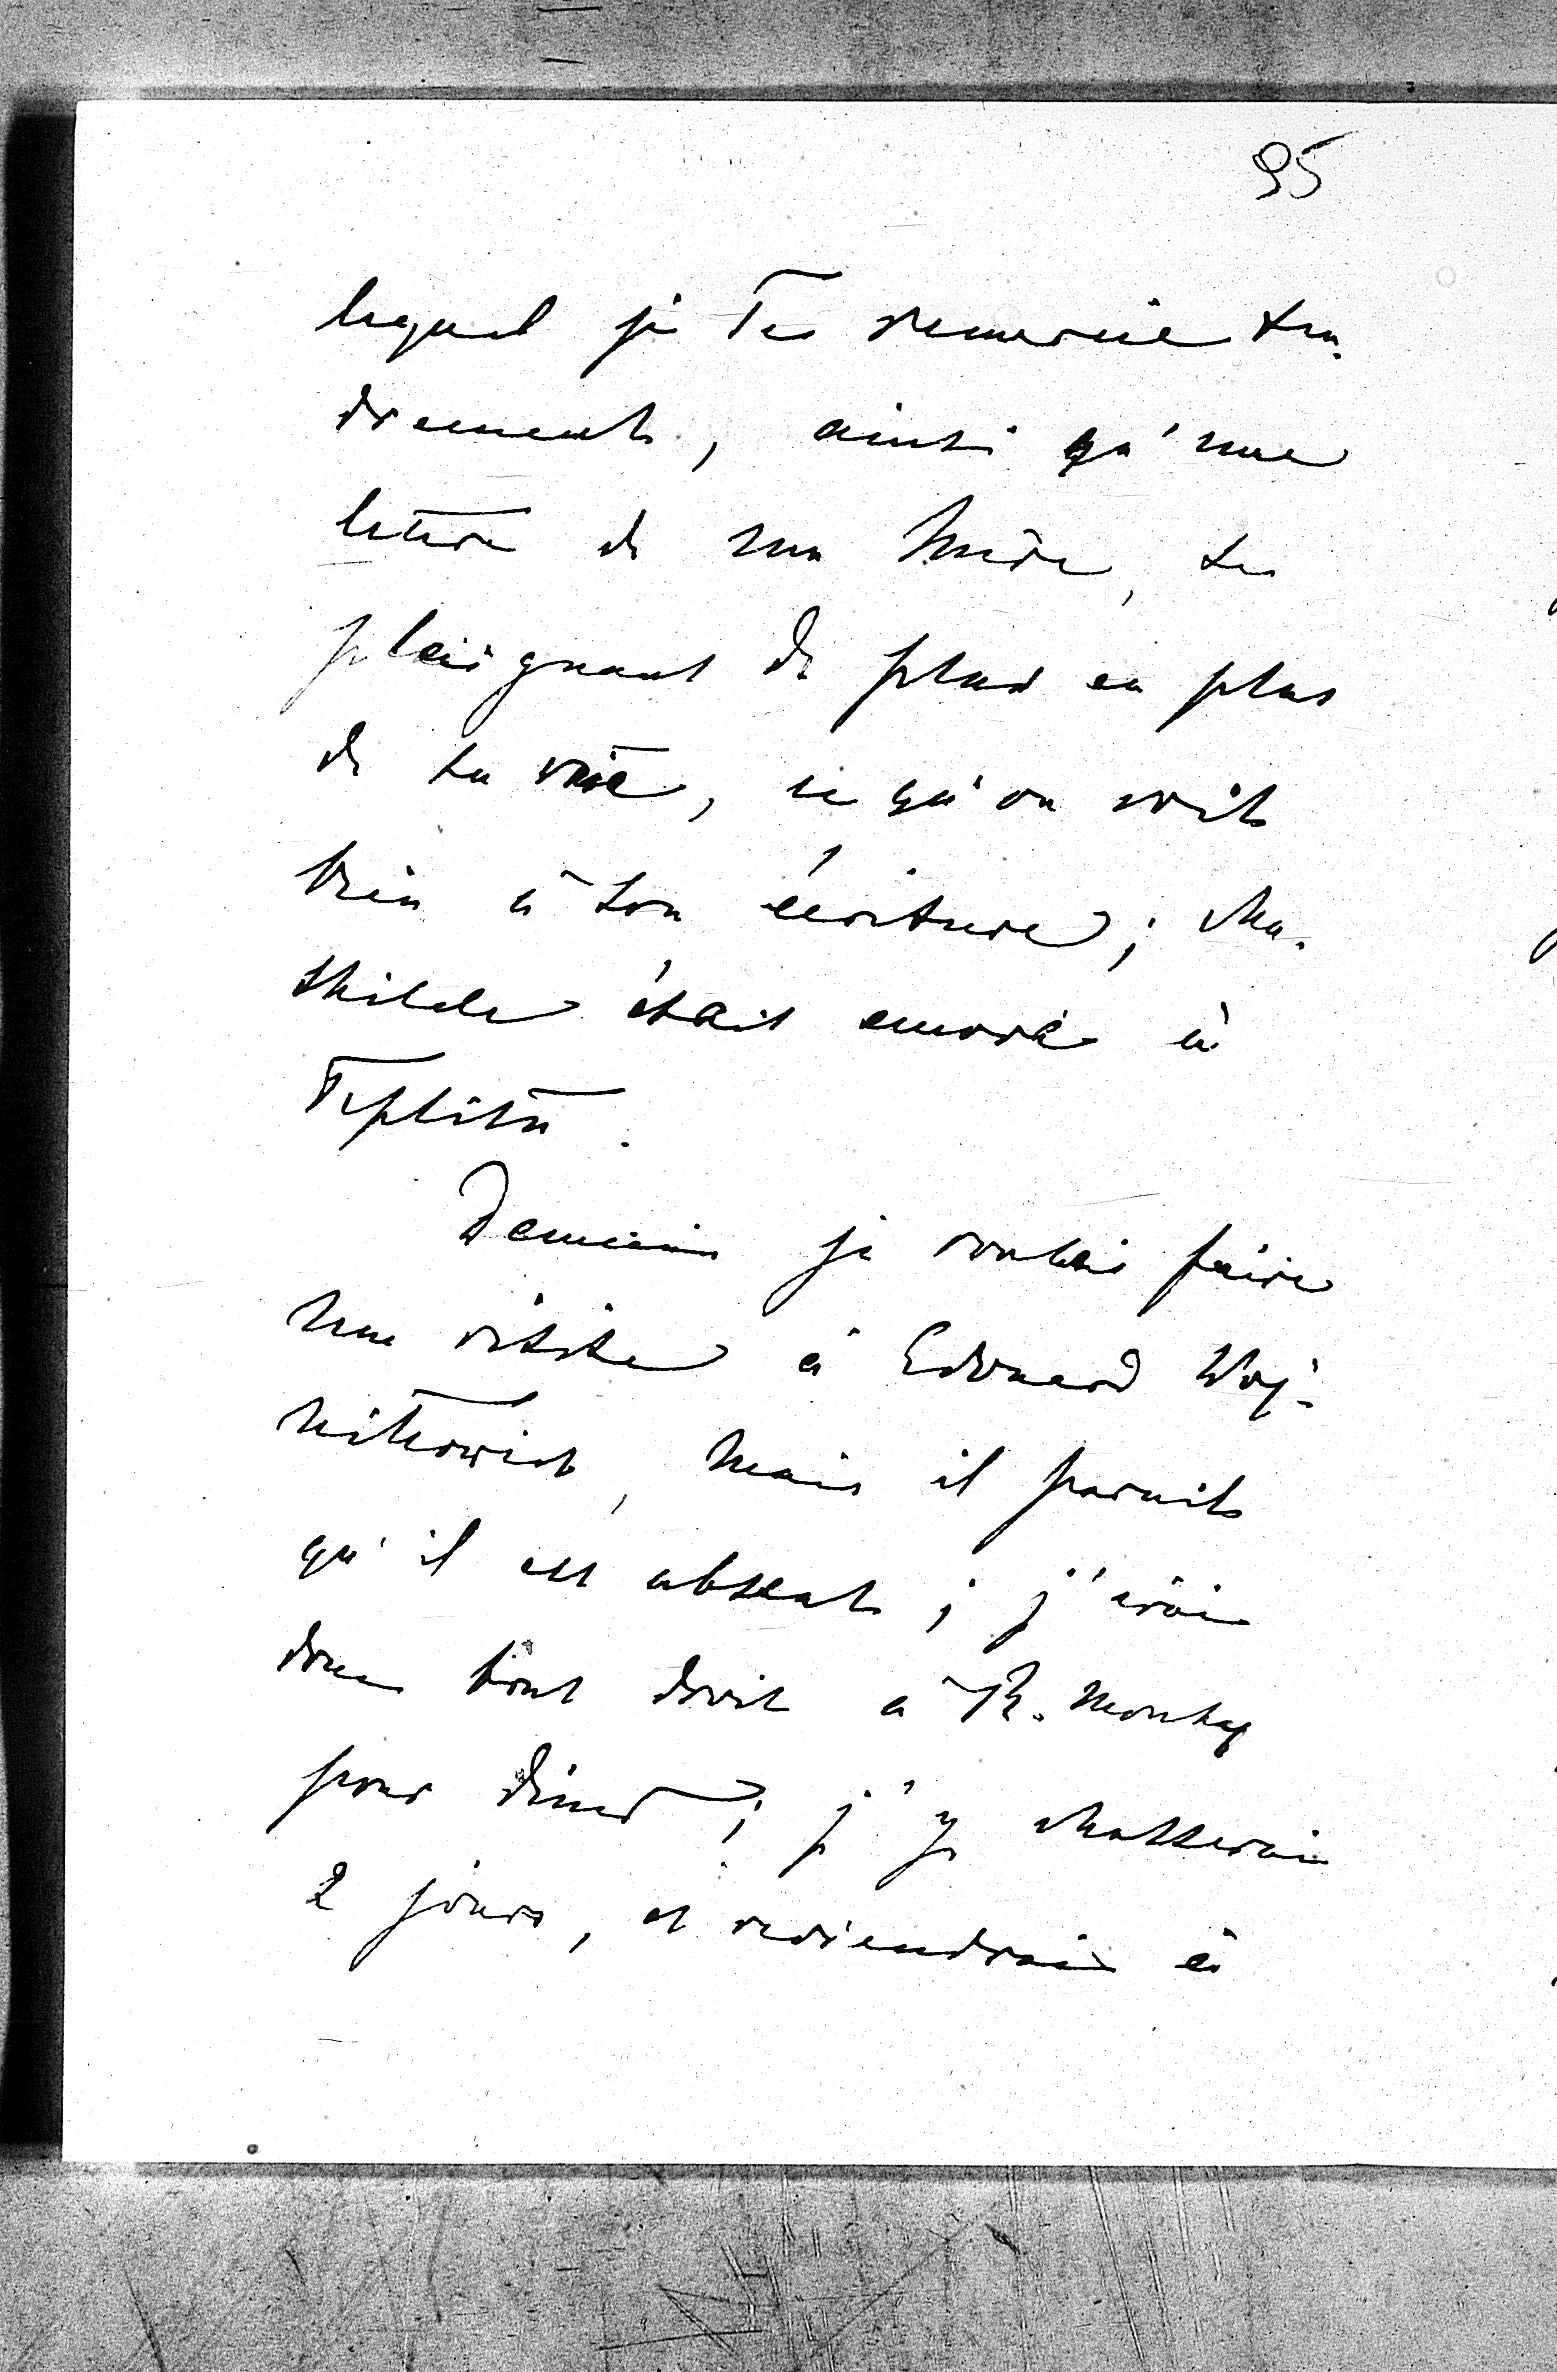 95
lequel je Te remercie ten-
drement, ainsi qu'une
lettre de ma Mère, se
plaignant de plus en plus
de sa vue, ce qu'on voit
bien à son écriture; Ma-
thilde était encore à
Teplitz.
Demain je voulais faire
une visite à Edouard Woj-
nitowich, mais il parait
qu'il est absent; j'irai
donc tout droit à R.
pour dîner; j'y resterai
2 jours, et reviendrai à